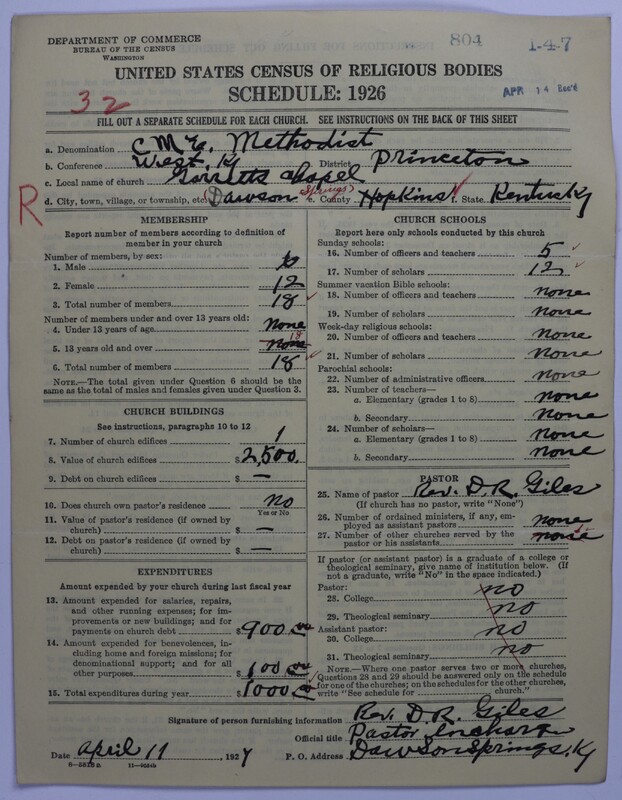 DEPARTMENT OF COMMERCE
BUREAU OF THE CENSUS
WASHINGTON
804
1-4-7
UNITED STATES CENSUS OF RELIGIOUS BODIES
SCHEDULE: 1926
APR 14 Rec'd
32
FILL OUT A SEPARATE SCHEDULE FOR EACH CHURCH. SEE INSTRUCTIONS ON THE BACK OF THIS SHEET
a. Denomination C M E. Methodist
b. Conference West. Ky District Princeton
c. Local name of church Garretts Chapel
R
d. City, town, village, or township, etc. Dawson (Springs) e. County Hopkins f. State Kentucky
MEMBERSHIP
Report number of members according to definition of
member in your church
Number of members, by sex:
1. Male 6
2. Female 12
3. Total number of members 18
Number of members under and over 13 years old:
4. Under 13 years of age none
5. 13 years old and over none 18
6. Total number of members 18
NOTE.—The total given under Question 6 should be the
same as the total of males and females given under Question 3.
CHURCH BUILDINGS
See instructions, paragraphs 10 to 12
7. Number of church edifices 1
8. Value of church edifices $2,500.
9. Debt on church edifices $ —
10. Does church own pastor's residence no
Yes or No
11. Value of pastor's residence (if owned by
church) $ —
12. Debt on pastor's residence (if owned by
church) $ —
EXPENDITURES
Amount expended by your church during last fiscal year
13. Amount expended for salaries, repairs,
and other running expenses; for im-
provements or new buildings; and for
payments on church debt $900.00
14. Amount expended for benevolences, in-
cluding home and foreign missions; for
denominational support; and for all
other purposes $100.00
15. Total expenditures during year $1000.00
CHURCH SCHOOLS
Report here only schools conducted by this church
Sunday schools:
16. Number of officers and teachers 5
17. Number of scholars 12
Summer vacation Bible schools:
18. Number of officers and teachers none
19. Number of scholars none
Week-day religious schools:
20. Number of officers and teachers none
21. Number of scholars none
Parochial schools:
22. Number of administrative officers none
23. Number of teachers—
a. Elementary (grades 1 to 8) none
b. Secondary none
24. Number of scholars—
a. Elementary (grades 1 to 8) none
b. Secondary none
PASTOR
25. Name of pastor Rev. D. R. Giles
(If church has no pastor, write "None")
26. Number of ordained ministers, if any, em-
ployed as assistant pastors none
27. Number of other churches served by the
pastor or his assistants none
If pastor (or assistant pastor) is a graduate of a college or
theological seminary, give name of institution below. (If
not a graduate, write "No" in the space indicated.)
Pastor:
28. College no
29. Theological seminary no
Assistant pastor:
30. College no
31. Theological seminary no
NOTE.—Where one pastor serves two or more churches,
Questions 28 and 29 should be answered only on the schedule
for one of the churches; on the schedules for the other churches,
write "See schedule for church."
Signature of person furnishing information Rev. D. R. Giles
Official title Pastor Incharge
Date April 11, 1927 P. O. Address Dawson Springs, Ky